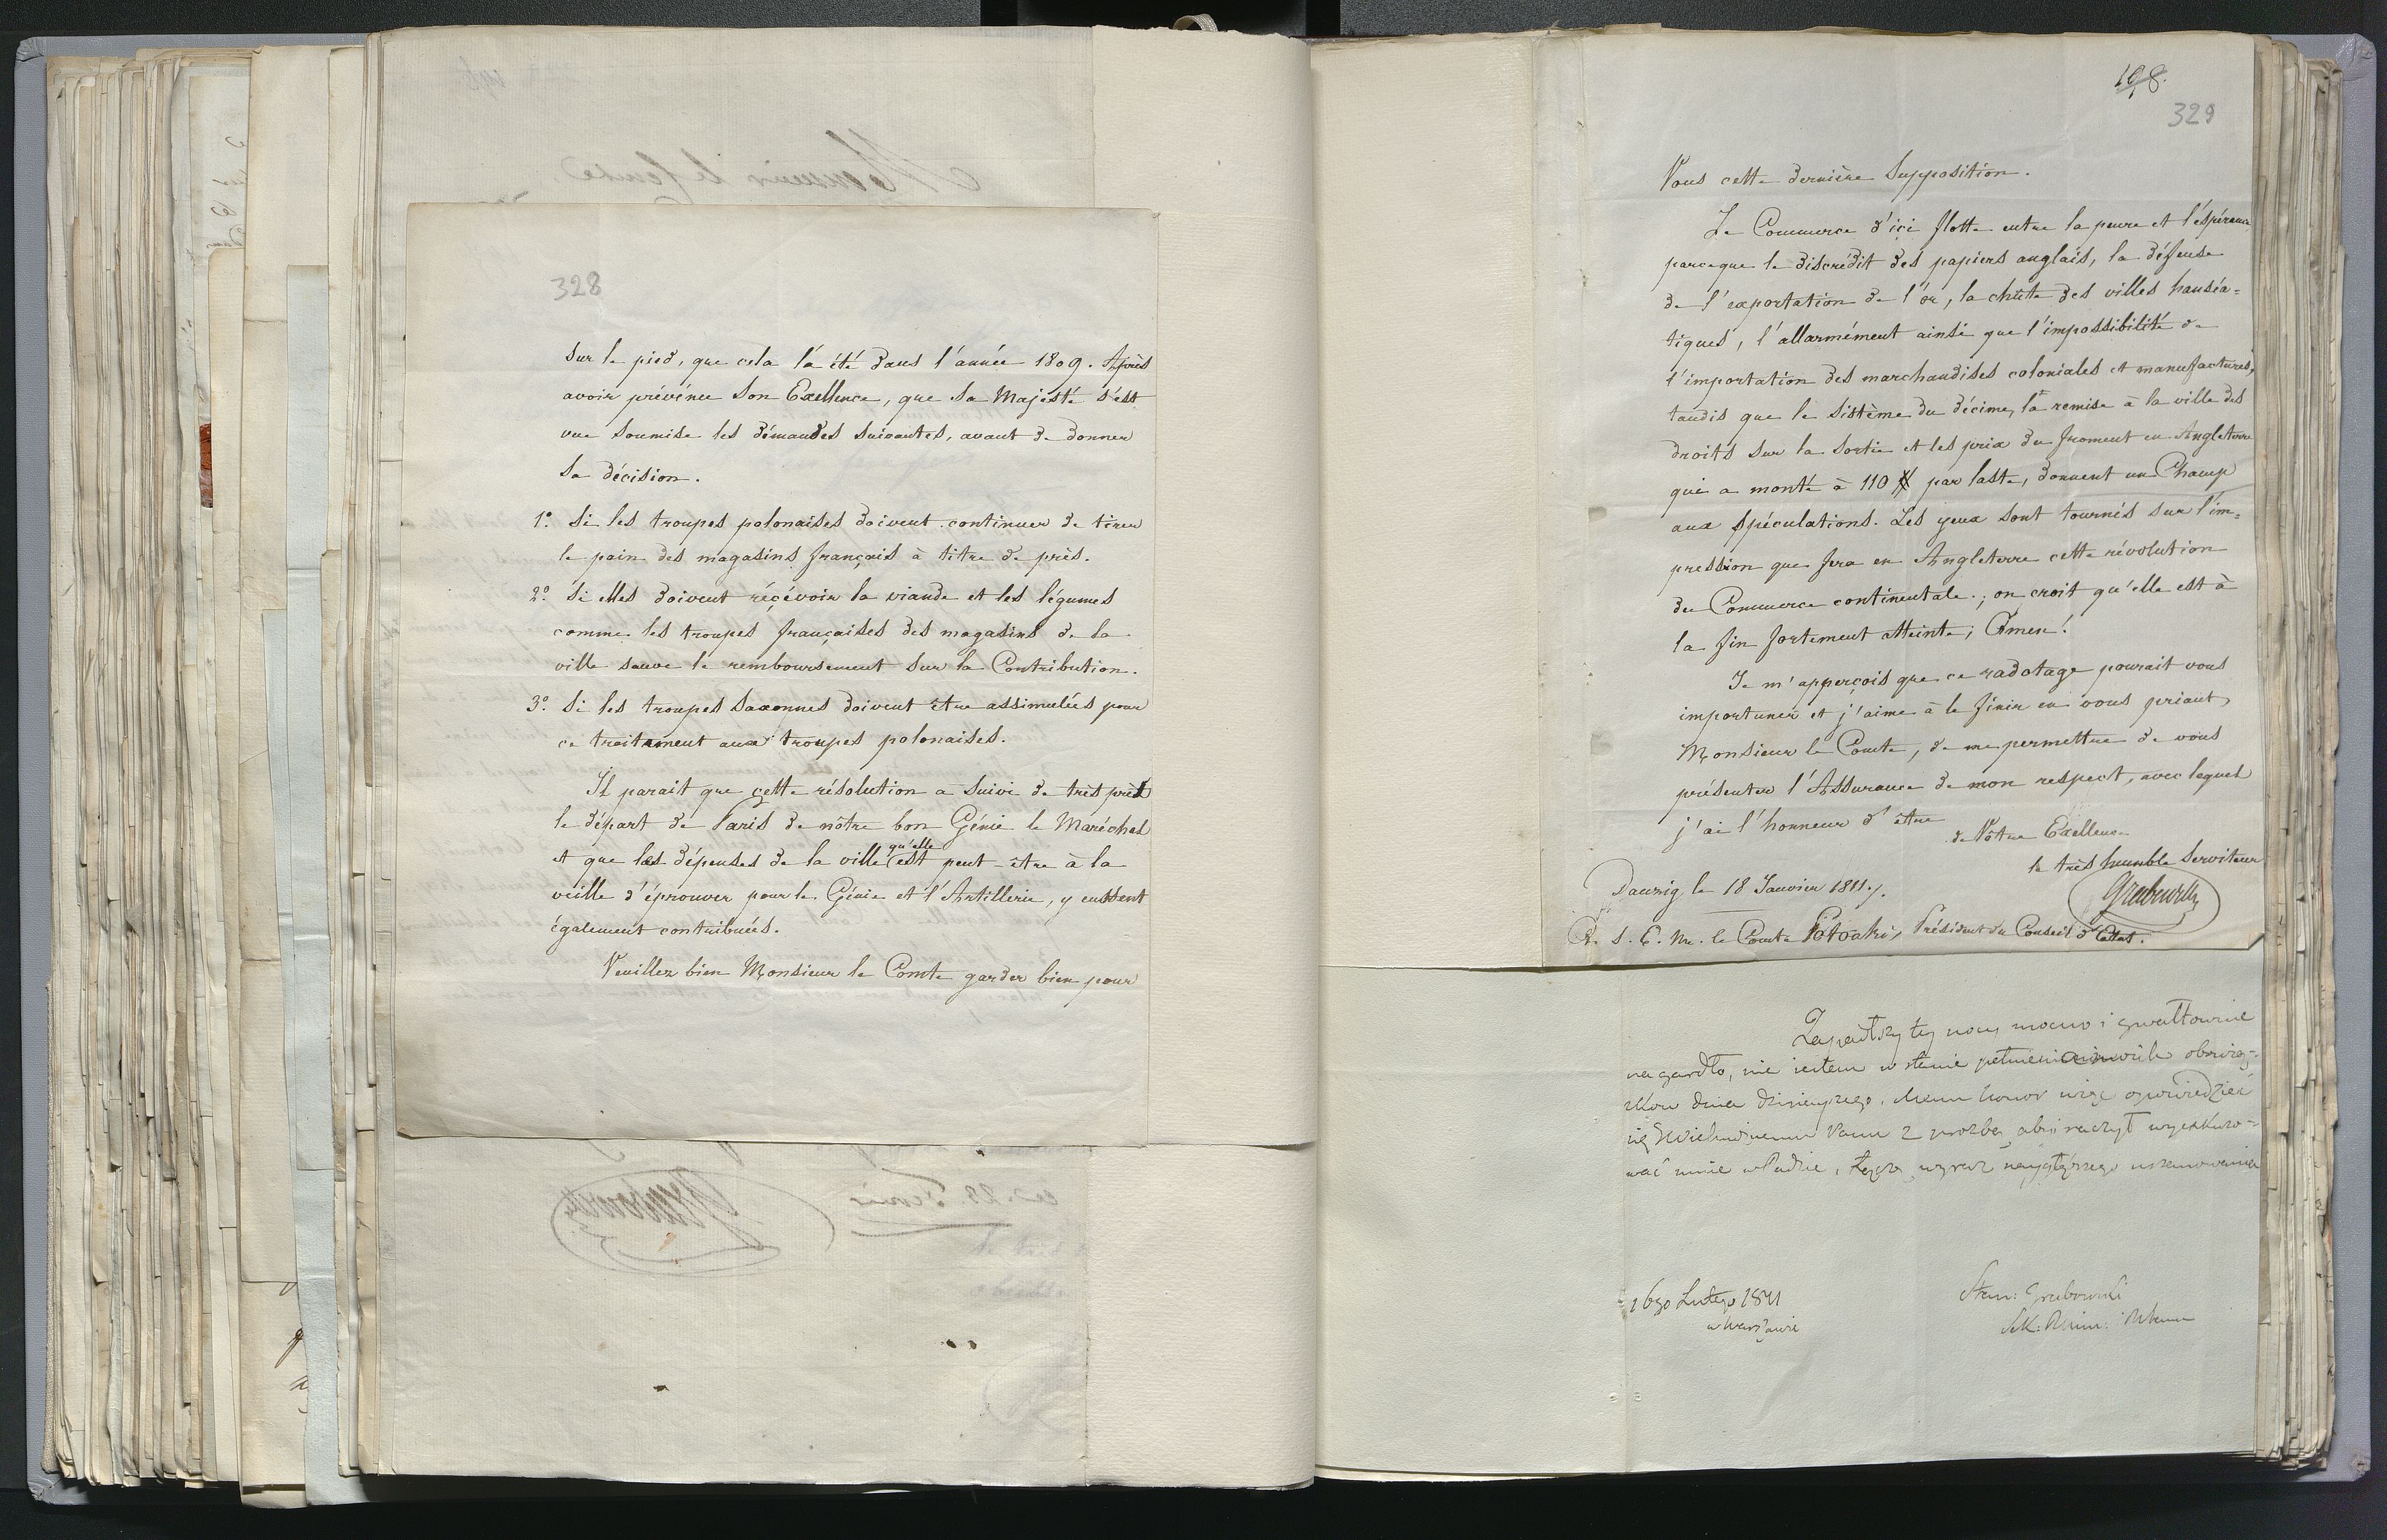 328
sur le pied, que cela l'a été dans l'année 1809. Après
avoir prévénue Son Exellence, que Sa Majesté s'est
vue soumise les démandes suivantes, avant de donner
sa décision.
1º. Si les troupes polonaises doivent continuer de tirer
le pain des magasins français à titre de près.
2º. Si elles doivent réçévoir la viande et les légumes
comme les troupes françaises des magasins de la
ville sauve le remboursement sur la Contribution.
3º. Si les troupes Saxonnes doivent être assimulées pour
ce traitement aux troupes polonaises.
Il parait que cette résolution a suivi de très près
le départ de Paris de nôtre bon Génie le Maréchal
et que les dépenses de la ville qu'elle est peut-être à la
veille d'éprouver pour le Génie et l'Artillerie, y eussent
également contribuées.
Veuillez bien Monsieur le Comte garder bien pour
198.
329
Vous cette dernière Supposition.
Le Commerce d'ici flotte entre la peure et l'éspérance
parceque le discrédit des papiers anglais, la défense
de l'exportation de l'or, la chûte des villes hanséa=
tiques, l'allarmément ainsi que l'impossibilité de
l'importation des marchandises coloniales et manufactures,
tandis que le sistème du décime, la remise à la ville des
droits sur la sortie et les prix du froment en Angleterre
qui a monté à 110 par laste, donnent un Champ
aux spéculations. Les yeux sont tournés sur l'im=
pression que fera en Angleterre cette révolution
du Commerce continentale; on croit qu'elle est à
la fin fortement atteinte; Amen!
Je m'apperçois que ce radotage pourait vous
importuner et j'aime à le finir en vous priant,
Monsieur le Comte, de me permettre de vous
présenter l'Assurance de mon respect, avec lequel
j'ai l'honneur d'être
de Vôtre Exellence
le très humble Serviteur
Danzig le 18 Janvier 1811.
A. S. E. Mr. le Comte Potocki, Président du Conseil d'Etat.
Zapadłszy tey nocy mocno i gwałtownie
na gardło, nie iestem w stanie obowią=
zków dnia dzisieyszego. Mam honor więc opowiedzieć
się Wielmożnemu Panu z prozbą abyś raczył wyexkuzo=
wać mnie łącząc wyraz uszanowania
16go Lutego 1811
w Warszawie
Stan: Grabowski
Sek: